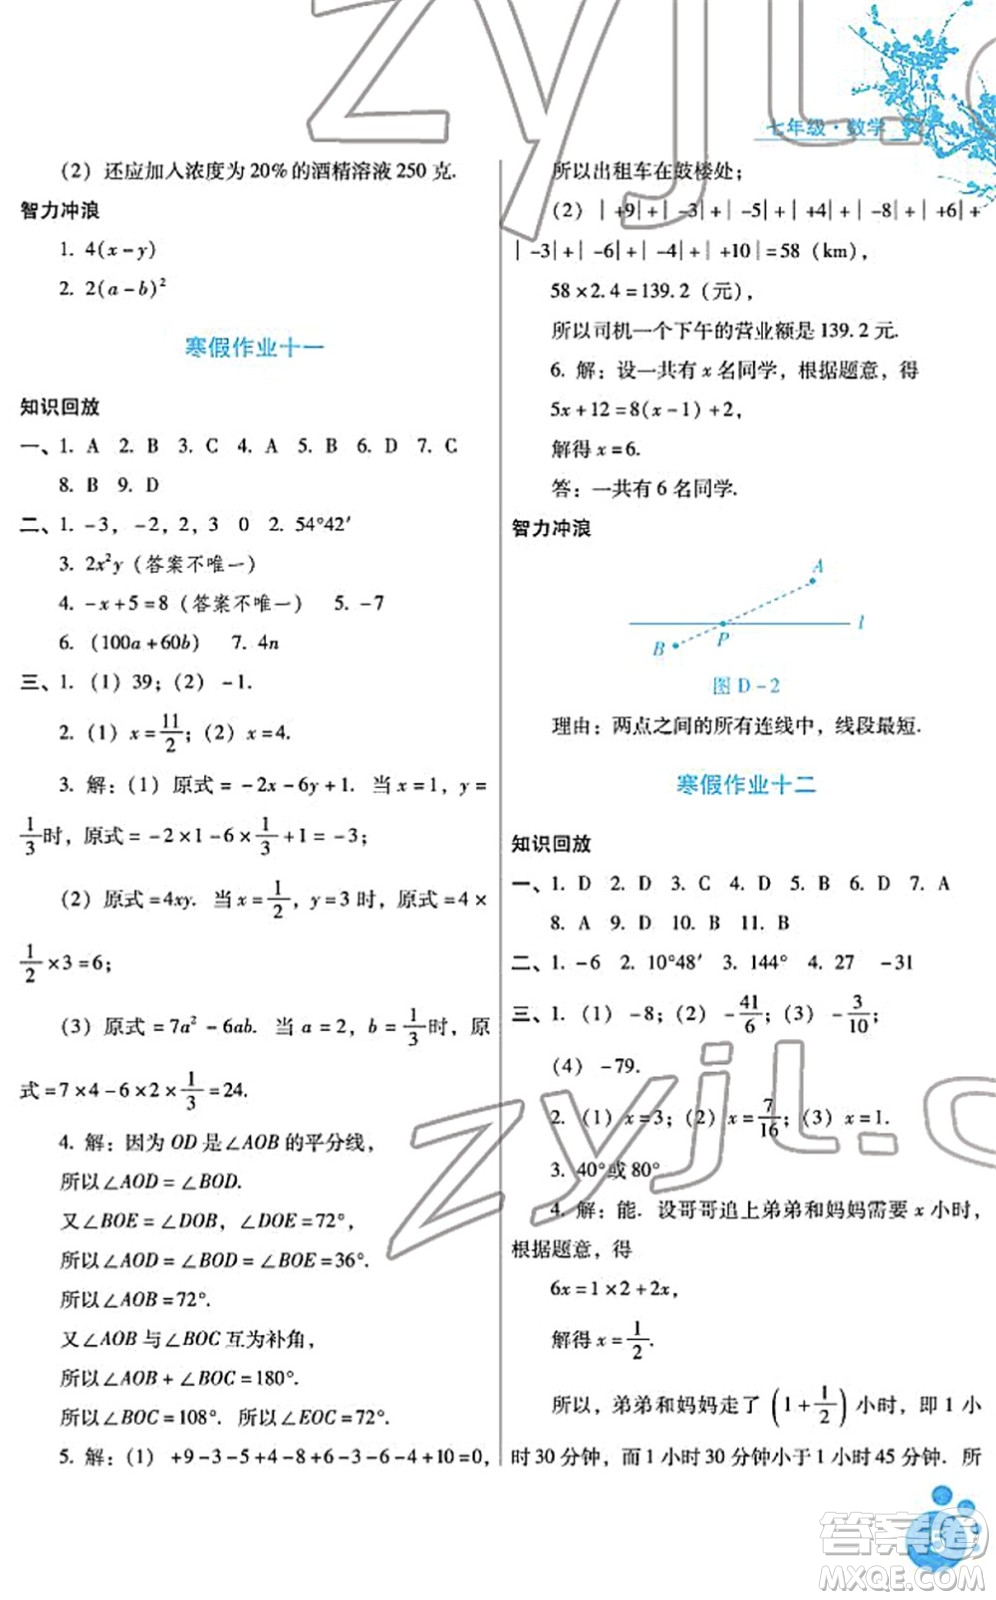 七年级·数学
(2) 还应加入浓度为 20% 的酒精溶液 250 克.
智力冲浪
1. 4(x-y)
2. 2(a-b)²
寒假作业十一
知识回放
一、1. A 2. B 3. C 4. A 5. B 6. D 7. C
8. B 9. D
二、1. -3, -2, 2, 3 0 2. 54°42′
3. 2x²y (答案不唯一)
4. -x+5=8 (答案不唯一) 5. -7
6. (100a+60b) 7. 4n
三、1. (1) 39; (2) -1.
2. (1) x=11/2; (2) x=4.
3. 解: (1) 原式=-2x-6y+1. 当 x=1, y=
1/3时, 原式=-2×1-6×1/3+1=-3;
(2) 原式=4xy. 当 x=1/2, y=3 时, 原式=4×
1/2×3=6;
(3) 原式=7a²-6ab. 当 a=2, b=1/3时, 原
式=7×4-6×2×1/3=24.
4. 解: 因为 OD 是∠AOB 的平分线,
所以∠AOD=∠BOD.
又∠BOE=∠DOB, ∠DOE=72°,
所以∠AOD=∠BOD=∠BOE=36°.
所以∠AOB=72°.
又∠AOB 与∠BOC 互为补角,
所以∠AOB+∠BOC=180°.
所以∠BOC=108°. 所以∠EOC=72°.
5. 解: (1) +9-3-5+4-8+6-3-6-4+10=0,
所以出租车在鼓楼处;
(2) |+9|+|-3|+|-5|+|+4|+|-8|+|+6|+
|-3|+|-6|+|-4|+|+10|=58 (km),
58×2.4=139.2 (元),
所以司机一个下午的营业额是 139.2 元.
6. 解: 设一共有 x 名同学, 根据题意, 得
5x+12=8(x-1)+2,
解得 x=6.
答: 一共有 6 名同学.
智力冲浪
A
B P l
图 D-2
理由: 两点之间的所有连线中, 线段最短.
寒假作业十二
知识回放
一、1. D 2. D 3. C 4. D 5. B 6. D 7. A
8. A 9. D 10. B 11. B
二、1. -6 2. 10°48′ 3. 144° 4. 27 -31
三、1. (1) -8; (2) -41/6; (3) -3/10;
(4) -79.
2. (1) x=3; (2) x=7/16; (3) x=1.
3. 40°或 80°
4. 解: 能. 设哥哥追上弟弟和妈妈需要 x 小时,
根据题意, 得
6x=1×2+2x,
解得 x=1/2.
所以, 弟弟和妈妈走了 (1+1/2) 小时, 即 1 小
时 30 分钟, 而 1 小时 30 分钟小于 1 小时 45 分钟. 所
5
zyjl.c
zyjl.c
答案圈
MXQE.COM